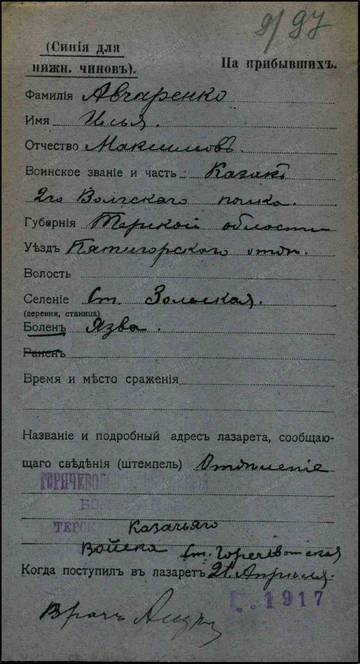 9/97
(Синія для
нижн. чиновъ).
На прибывшихъ.
Фамилія Авчаренко
Имя Илья
Отчество Максимовъ
Воинское званіе и часть Казакъ
2го Волгскаго полка.
Губернія Терской области
Уѣздъ Пятигорскаго отд.
Волость
Селеніе ст. Зольская.
(деревня, станица)
Боленъ Язва.
Раненъ
Время и мѣсто сраженія
Названіе и подробный адресъ лазарета, сообщаю-
щаго свѣдѣнія (штемпель) Отдѣленіе
Казачьяго
Войска ст. Горячеводская
Когда поступилъ въ лазаретъ 21 Апрѣля.
1917
Врачъ